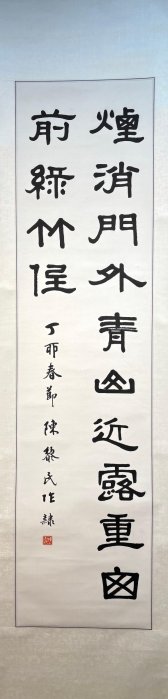 煙消門外青山近露重囪
前綠竹低
丁卯春節陳黎民作隸